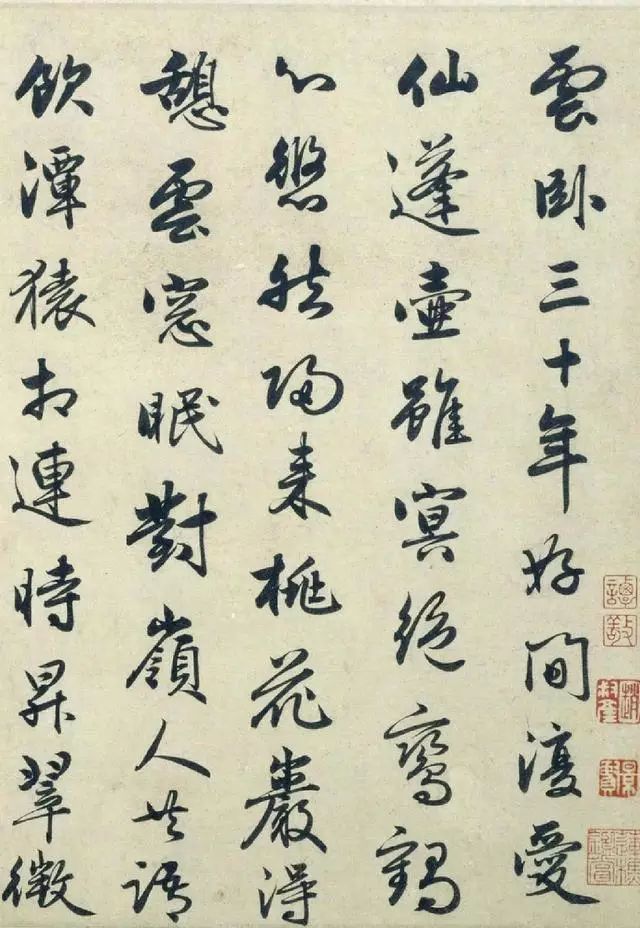 雲卧三十年好閒復愛
仙蓬壺雖冥絕鸞鶴
心悠然歸來桃花巖得
憩雲窓眠對嶺人共語
飲潭猿相連時昇翠微